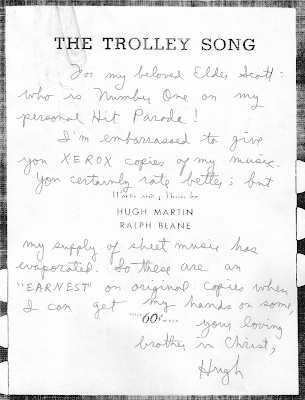 THE TROLLEY SONG
For my beloved Elder Scott:
who is Number One on my
personal Hit Parade!
I'm embarrassed to give
you XEROX copies of my music.
You certainly rate better; but
Words and Music by
HUGH MARTIN
RALPH BLANE
my supply of sheet music has
evaporated. So these are an
"EARNEST" on original copies when
I can get my hands on some,
PRICE 60¢
your loving
brother in Christ,
Hugh